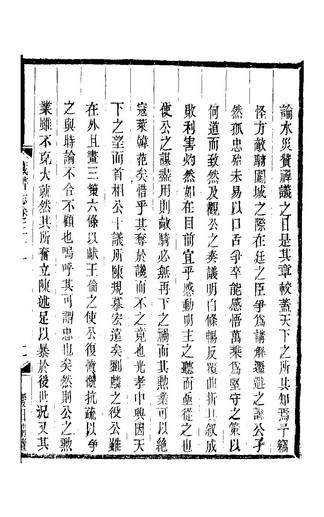 論水災贊禪議之日是其章較蓋天下之所共知焉予竊
怪方敵騎圍城之際在廷之臣爭為講解遷避之說公孑
然孤忠殆未易以口舌爭卒能感悟萬乘為堅守之策以
何道而致然及觀公之奏議明白條暢反覆曲折具敘成
敗利害灼然如在目前宜乎感動明主之聽而至從之也
使公之謀盡用則敵騎必無再下之禍而其勲業可以絕
寇萊韓范矣惜乎其奪於讒而不之竟也光孝中興因天
下之望而首相公十議所陳規摹宏遠矣劉麟之役公雖
在外且畫三策六條以獻王倫之使公復慷慨抗疏以爭
之與時論不合不顧也嗚呼其可謂忠也矣然則公之勲
業雖不克大就然其所奮立陳述足以暴於後世況又其